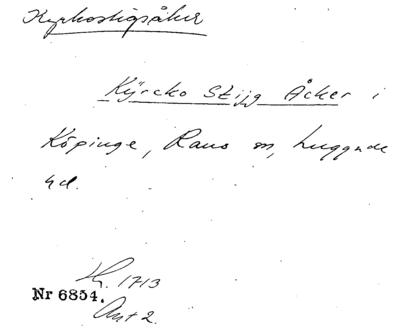 Kyrkostigsåker
Kÿrcko Stijg Åcker i
Köpinge, Raus sn, Luggude
hd.
K. 1713
Nr 6854.
Ant 2.